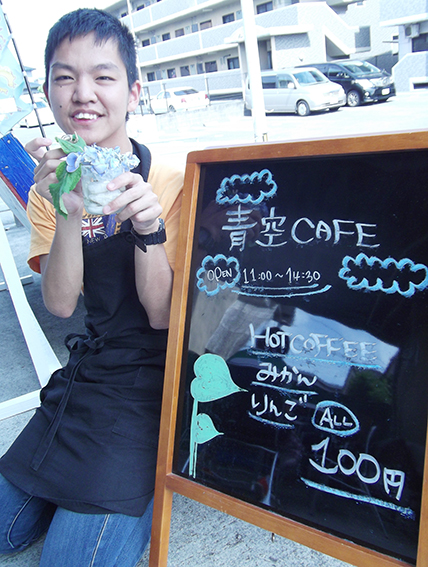 青空CAFE
OPEN 11:00~14:30
HOT COFFEE
みかん
りんご ALL
100円